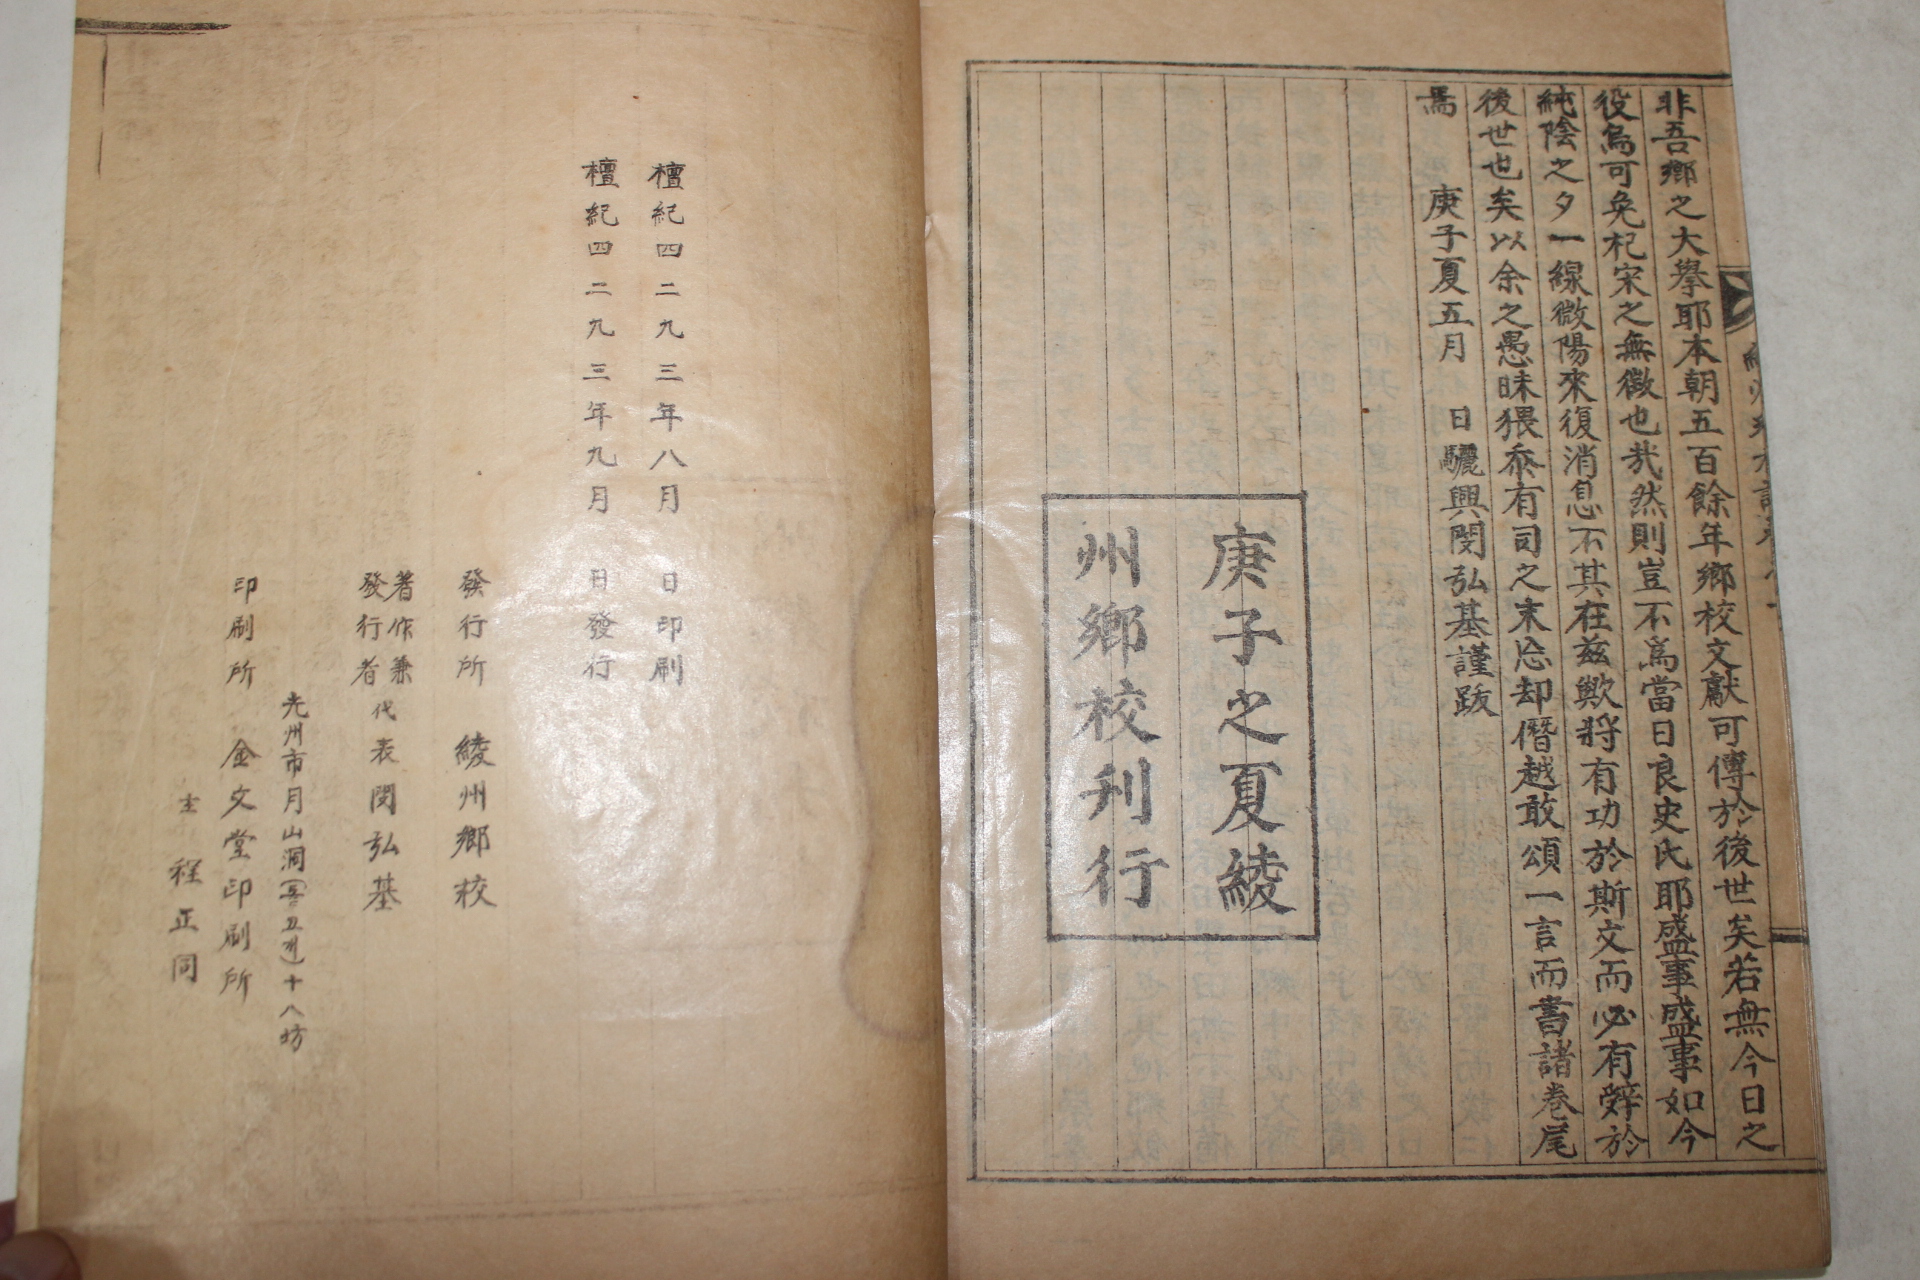 非吾鄉之大擧耶本朝五百餘年鄉校文獻可傳於後世矣若無今日之
役烏可免杞宋之無徵也哉然則豈不爲當日良史氏耶盛事盛事如今
純陰之夕一線微陽來復消息不其在茲歟將有功於斯文而必有辭於
後世也矣以余之愚昧猥忝有司之末忘却僭越敢頌一言而書諸卷尾
焉
庚子夏五月 日驪興閔弘基謹跋
庚子之夏綾
州鄉校刊行
檀紀四二九三年八月 日印刷
檀紀四二九三年九月 日發行
發行所 綾州鄉校
著作兼
發行者 代表 閔弘基
光州市月山洞(五구)十八坊
印刷所 金文堂印刷所
主 程正同